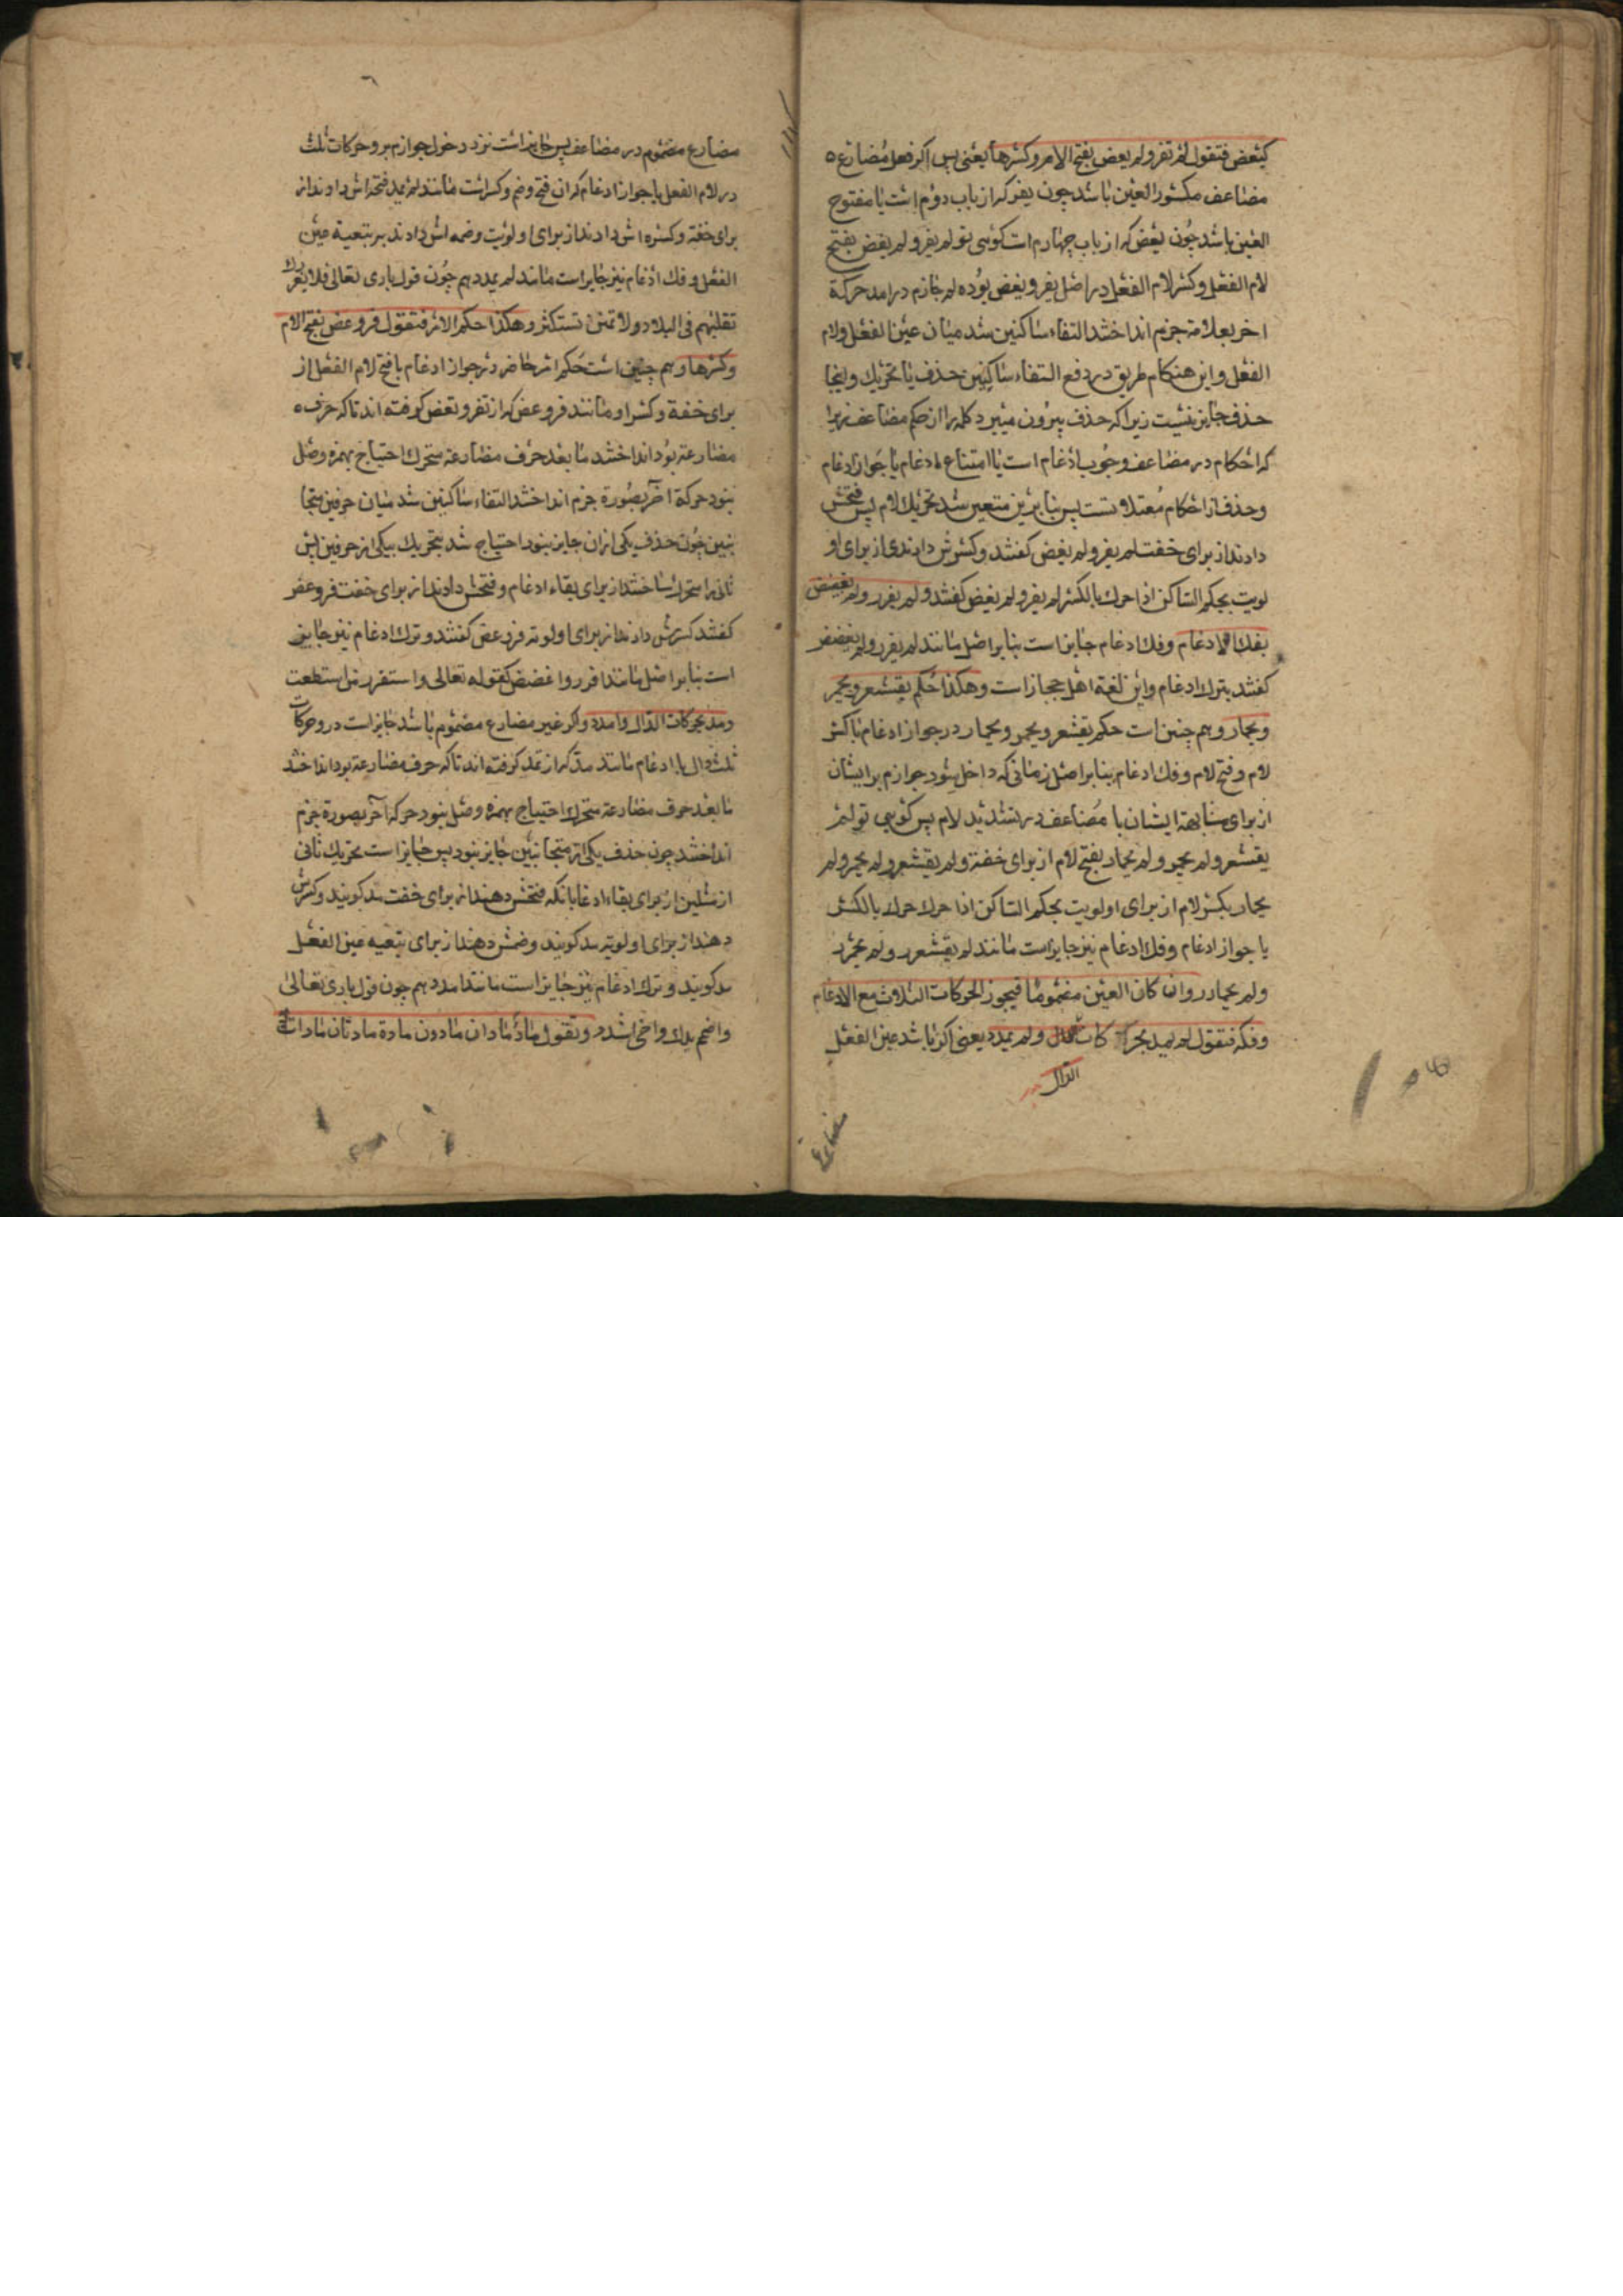 کیعض فتقول لم تفر ولم یعض بفتح الام وکسرها یعنی پس اکر فعل مضارع ه
مضاعف مکسور العین باشد چون یفر که از باب دوم است یا مفتوح
العین باشد چون یعض که از باب چهارم است کوئی تو لم یفر ولم یعض بفتح
لام الفعل وکسر لام الفعل در اصل یفر و یعض بوده لم جازم درامد حرکة
اخر بعلامة جزم انداختند التقاء ساکنین شد میان عین الفعل ولام
الفعل واین هنکام طریق در دفع التقاء ساکنین حذف یا تحریك واینجا
حذف جایز نیست زیرا که حذف بیرون میبرد کلمه را از حکم مضاعف زیرا
که احکام در مضاعف وجوب ادغام است یا امتناع ادغام یا جواز ادغام
وحذف از احکام معتلاتست پس بنابرین متعین شد تحریك لام پس فتحش
دادند از برای خفت لم یفر ولم یعض کفتند وکسرش دادند از برای او
لویت بحکم الساکن اذا حرك بالکسر لم یفر ولم یعض کفتند ولم یفرر ولم یعضض
بفك الادغام وفك ادغام جایز است بنابر اصل مانند لم یفرر ولم یعضض
کفتند بترك ادغام واین لغة اهل حجاز است وهکذا حکم یقشعر ویحمر
ویحمار وهم چنین است حکم یقشعر ویحمر ویحمار در جواز ادغام باکسر
لام وفتح لام وفك ادغام بنابر اصل زمانی که داخل شود جوازم بر ایشان
از برای مشابهة ایشان با مضاعف در تشدید لام پس کوئی تو لم
یقشعر ولم یحمر ولم یحمار بفتح لام از برای خفة ولم یقشعر ولم یحمر ولم
یحمار بکسر لام از برای اولویت بحکم الساکن اذا حرك حرك بالکسر
یا جواز ادغام وفك ادغام نیز جایز است مانند لم یقشعرر ولم یحمرر
ولم یحمارر وان کان العین مضموما فیجوز الحرکات الثلاث مع الادغام
وفکه فتقول لم یمد بحرکات ولم یمدد یعنی اکر باشد عین الفعل
الدال
مضارع
مضارع مضموم در مضاعف پس جایز است نزد دخول جوازم برو حرکات ثلث
در لام الفعل با جواز ادغام که ان فتح وضم وکسر است مانند لم یمد فتحه اش دادند از
برای خفة وکسره اش دادند از برای اولویت وضمه اش دادند بر تبعیة عین
الفعل وفك ادغام نیز جایز است مانند لم یمدد هم چون قول باری تعالی فلا یغررك
تقلبهم فی البلاد ولا تمنن تستکثر وهکذا حکم الامر فتقول فر وعض بفتح الام
وکسرها وهم چنین است حکم امر حاضر در جواز ادغام با فتح لام الفعل از
برای خفة وکسر او مانند فر وعض که از تفر وتعض کرفته اند تا که حرف ه
مضارعة بود انداختند ما بعد حرف مضارعة متحرك احتیاج بهمزه وصل
نبود حرکة اخر بصورة جزم انداختند التقاء ساکنین شد میان حرفین متجا
نسین چون حذف یکی ازان جایز نبود احتیاج شد بتحریك بیکی از حرفین پس
ثانی را متحرك ساختند از برای بقاء ادغام وفتحش دادند از برای خفت فر وعض
کفتند کسرش دادند از برای اولویة فر وعض کفتند وترك ادغام نیز جایز
است بنابر اصل مانند افرر واغضض کقوله تعالی واستفزز من استطعت
ومد بحرکات الدال وامدد واکر غیر مضارع مضموم باشد جایز است درو حرکات
ثلث دال با ادغام مانند مد که از تمد کرفته اند تا که حرف مضارعة بود انداختند
ما بعد حرف مضارعة متحرك احتیاج بهمزه وصل نبود حرکة آخر بصورة جزم
انداختند چون حذف یکی از متجانسین جایز نبود پس جایز است تحریك ثانی
از مثلین از برای بقاء ادغام بانکه فتحش دهند از برای خفت مد کویند وکسرش
دهند از برای اولویة مد کویند وضمش دهند از برای تبعیه عین الفعل
مد کویند وترك ادغام نیز جایز است مانند امدد هم چون قول باری تعالی
واضمم یدك واخی اشدد وتقول ماد مادان مادون مادة مادتان مادات